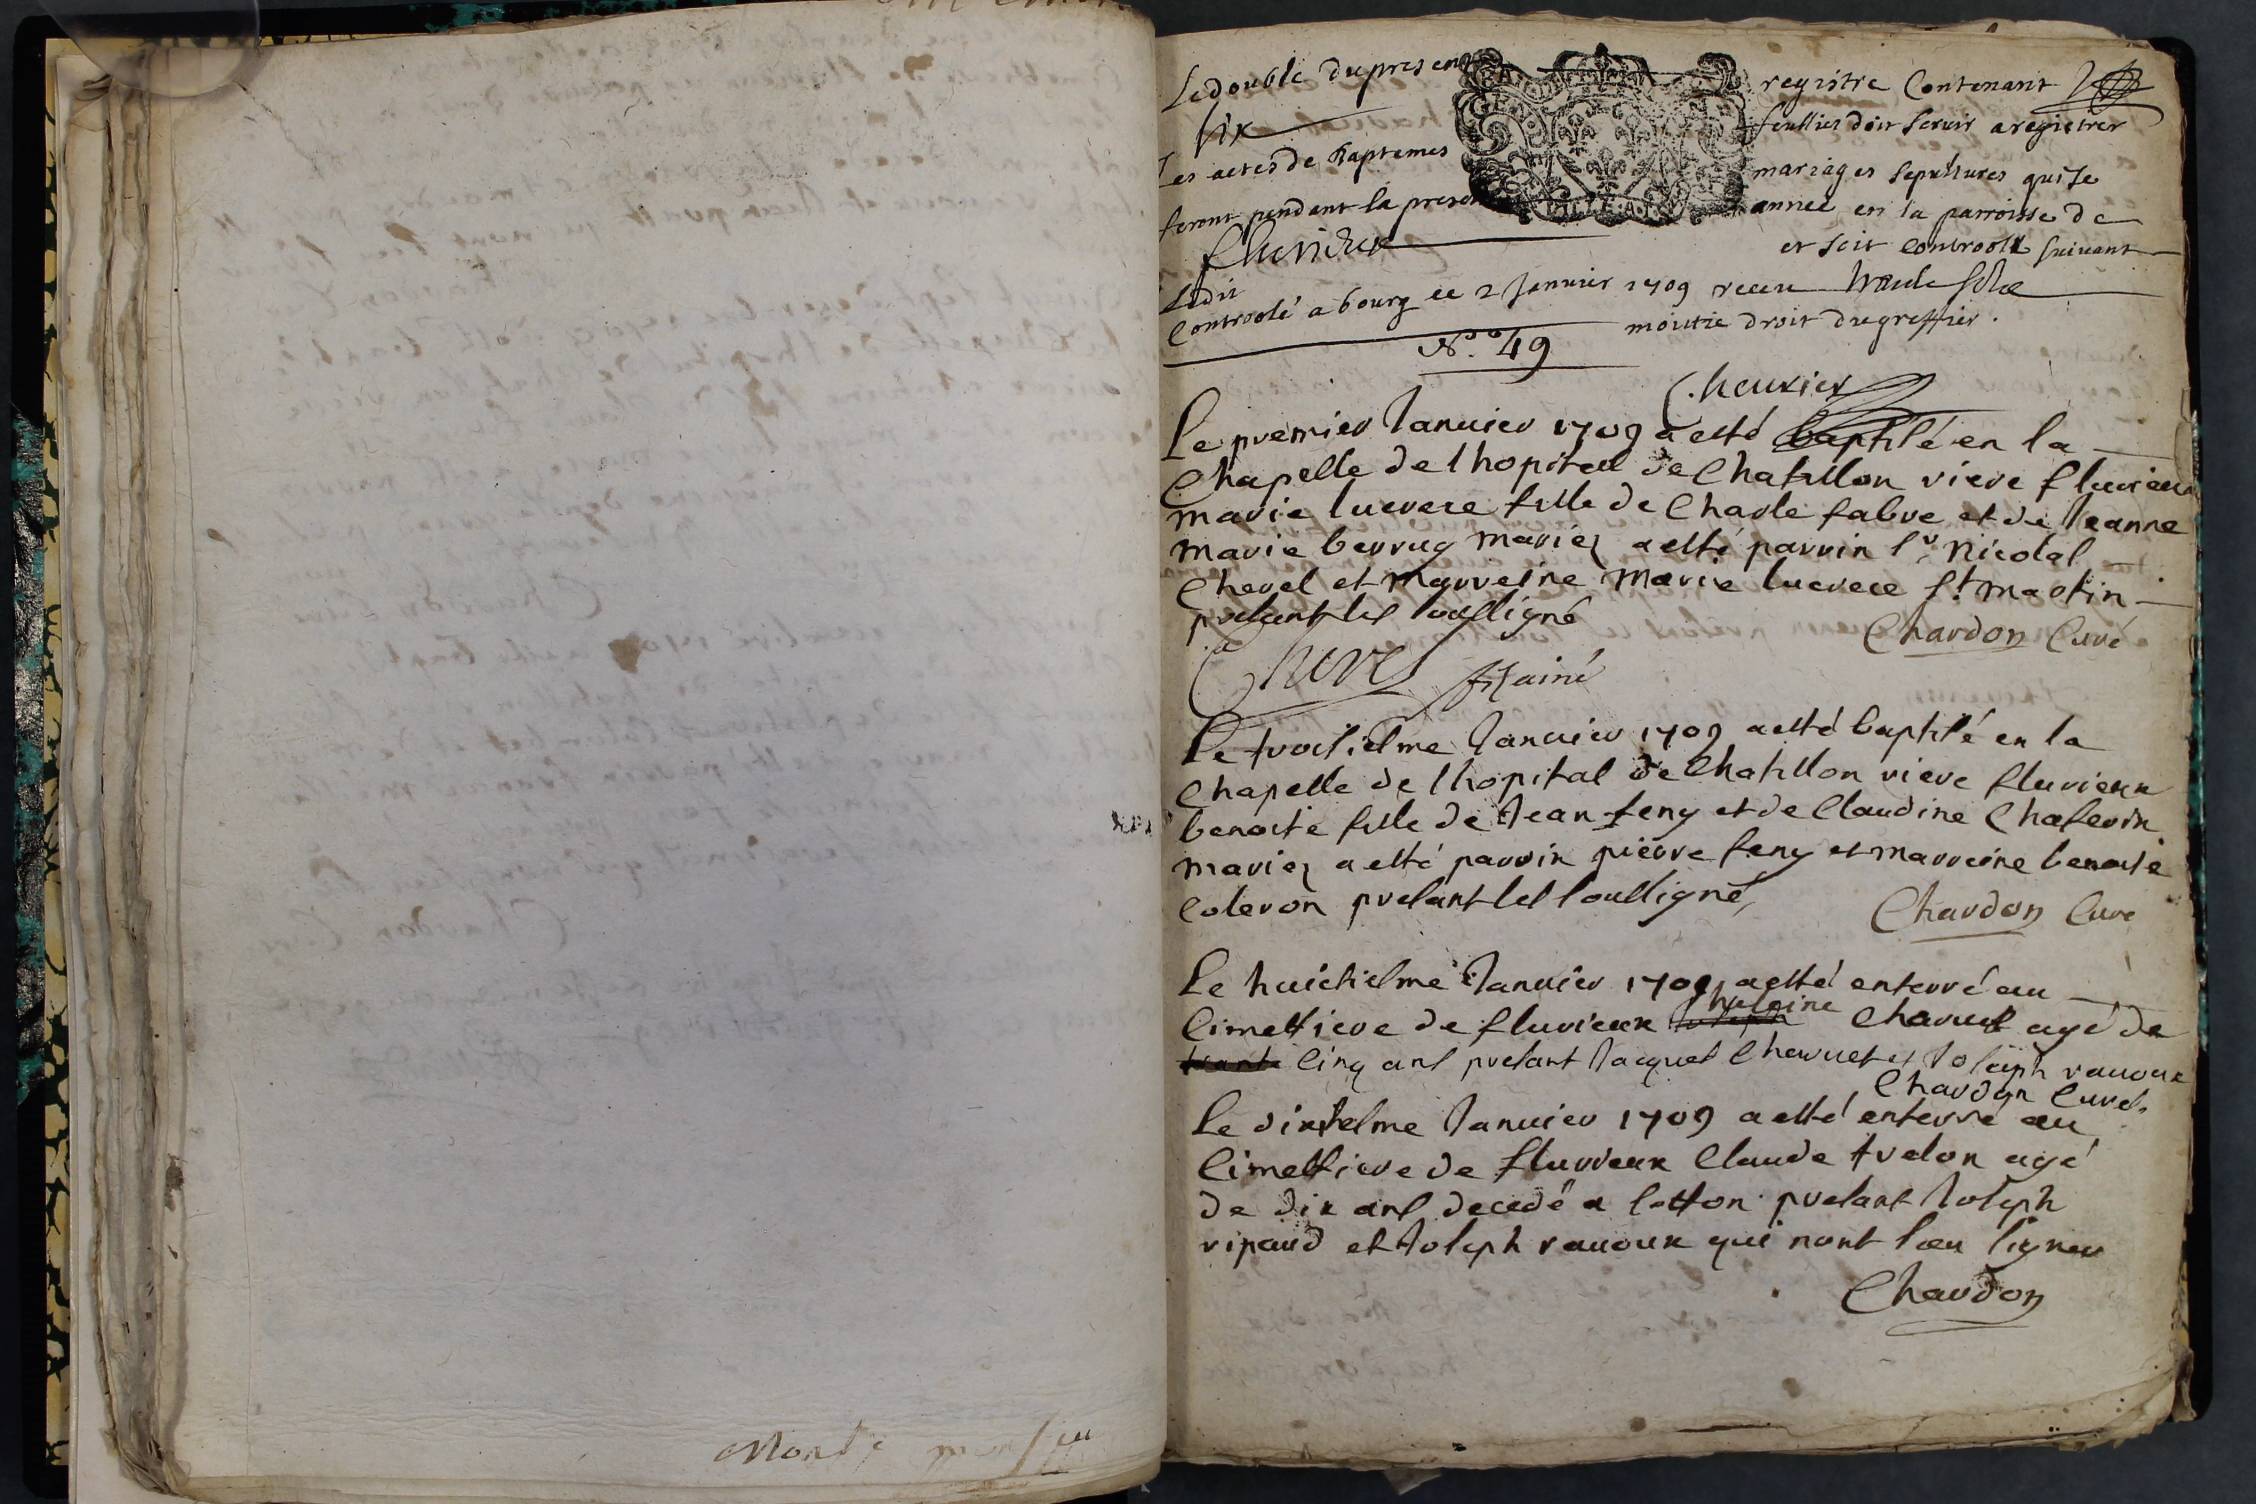 Le double du present registre Contenant
six feullies doit servir a registrer
Les actes de Baptemes mariages sepultures qui se
feront pendant la presente annee en la parroisse de
fluvieux et soit controollé suivant
Ledit
Controolé a bourg ce 2 Janvier 1709 receu
moitie droit du greffier.
N.° 49
Chevrier
Le premier Janvier 1709 a esté baptisé en la
Chapelle de lhopital de Chatillon riere fluvieux
marie lucrece fille de Charle fabre et de Jeanne
marie berruy mariez a esté parrin sr Nicolas
Chevel et marreine marie lucrece st martin
presant les soussigné
Chardon Curé
fitainé
Le troisiesme Janvier 1709 a esté baptisé en la
Chapelle de lhopital de Chatillon riere fluvieux
benoite fille de Jean feny et de Claudine Chaferin
mariez a esté parrin pierre feny et marreine benoite
Coleron presant les soussigné,
Chardon Curé
Le huictiesme Janvier 1709 a esté enterré au
Cimettiere de fluvieux Chavuet agé de
Cinq ans presant Jacques Chavuet et Joseph ravoux
Chardon Curé
Le dixiesme Janvier 1709 a esté enterré au
Cimettiere de fluvieux Claude trelon agé
de dix ans decedé a lotton presant Joseph
ripaud et Joseph ravoux qui nont sceu signer
Chardon